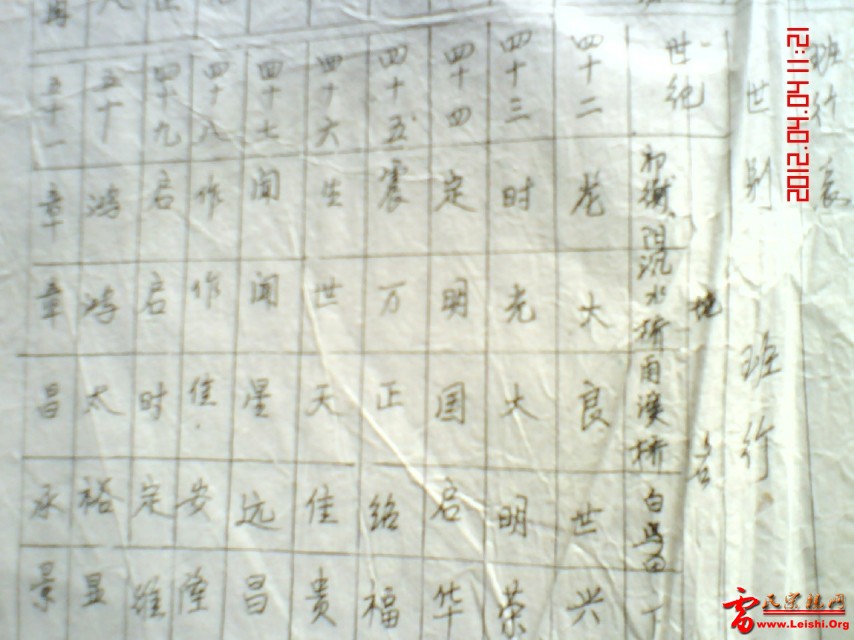 班行表
世别 班行
地名
世纪 水桥 南溪桥
四十二 大 良 世 兴
四十三 时 光 大 明 荣
四十四 定 明 国 启 华
四十五 震 万 正 绍 福
四十六 生 世 天 佳 贵
四十七 闻 闻 星 远 昌
四十八 作 作 佳 安 隆
四十九 启 启 时 定 维
五十 鸿 鸿 太 裕 显
五十一 章 章 昌 承 景
2012.04.04 11:12
雷氏宗亲网
www.Leishi.Org